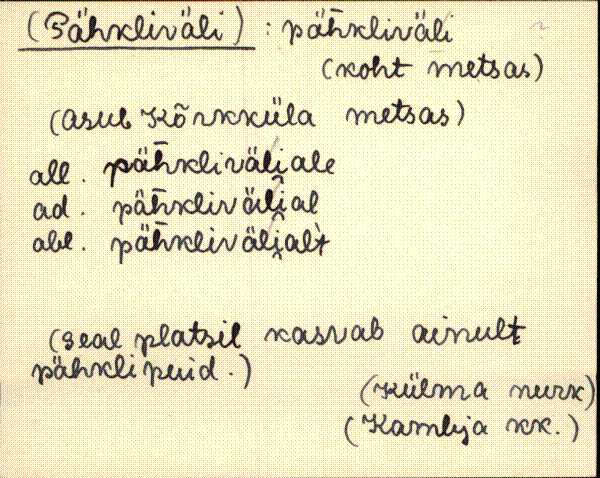 (Pähkliväli) : pähkliväli
(koht metsas)
(asub Kõrkküla metsas)
all. pähkliväljale
ad. pähkliväljal
abl. pähkliväljalt
(seal platsil kasvab ainult
pähklipuid.)
(Külma nurk)
(Kambja kk.)